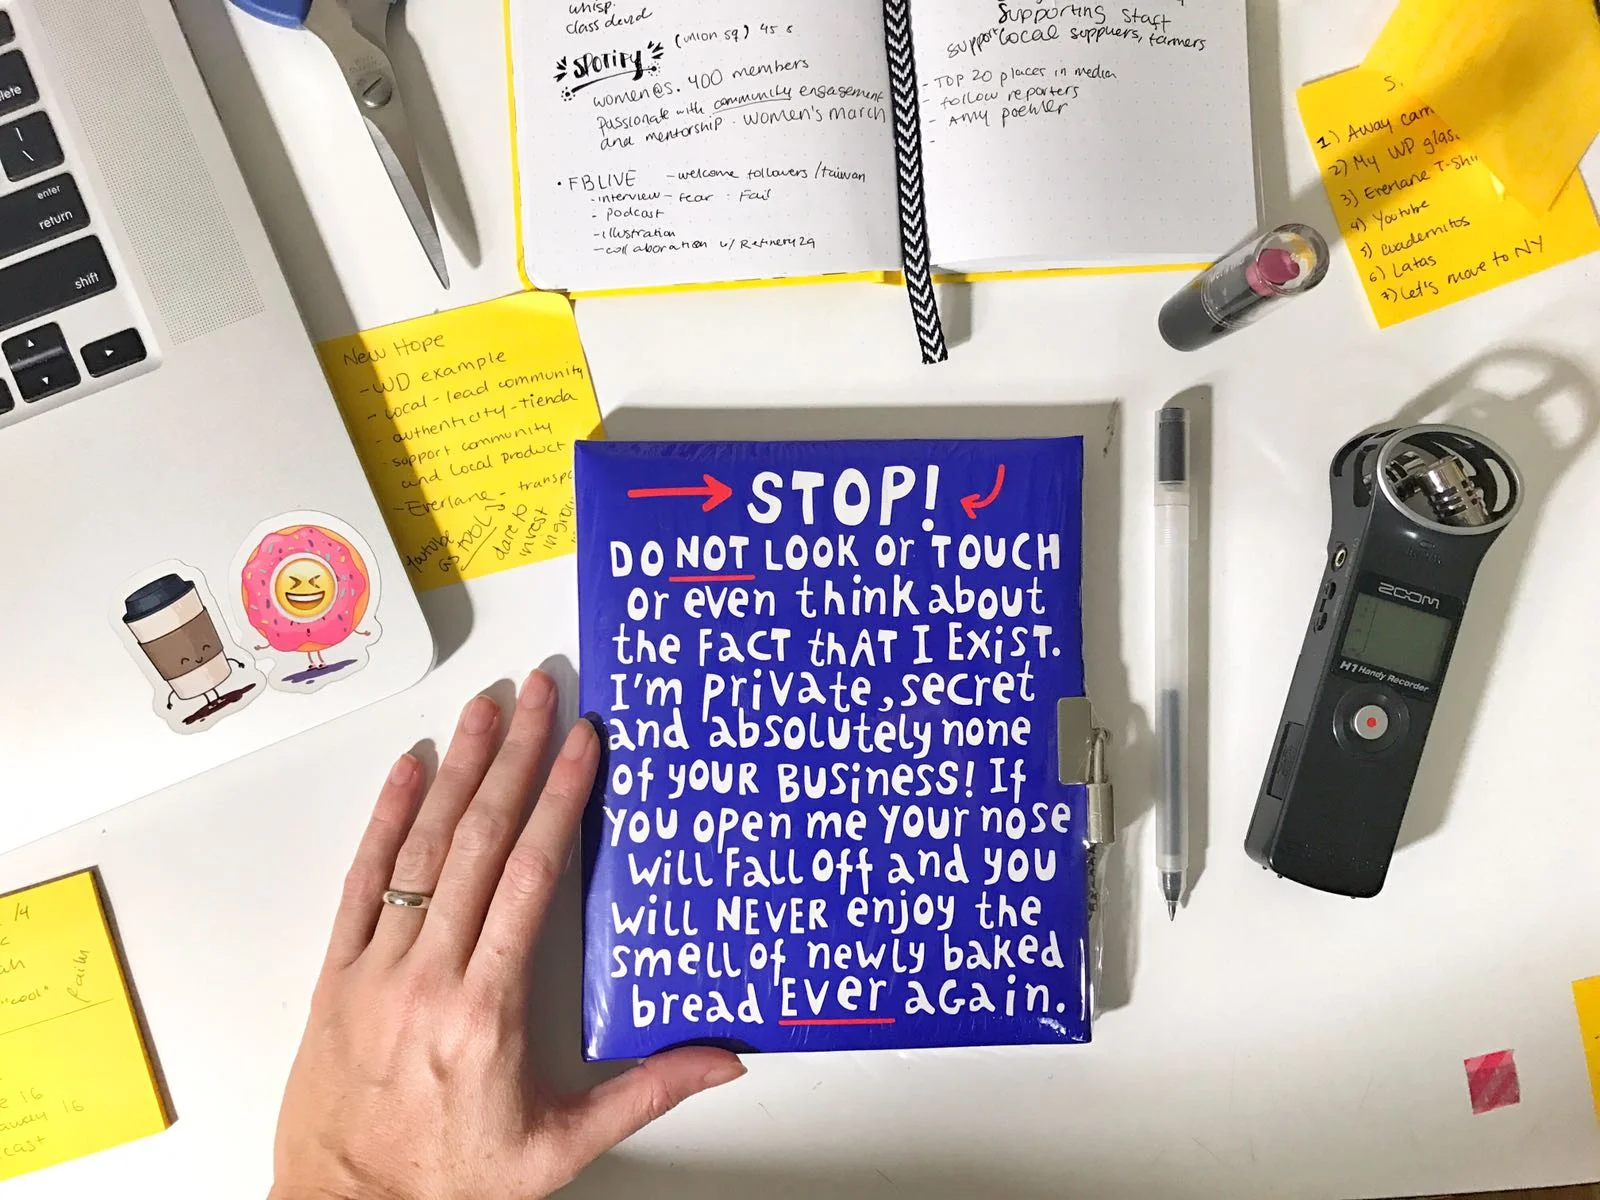 enter
return
shift
whisp.
class devid
SPOTIFY (union sq) 45 s
women@s. 400 members
passionate with community engagement
and mentorship. women's march
• FB LIVE - welcome followers / taiwan
- interview - fear - Fail
- podcast
- illustration
- collaboration w/ Refinery29
supporting staff
support local suppliers, farmers
- TOP 20 places in media
- follow reporters
- Amy poehler
-
5.
1) Away
2) My WP
3) Everlane T-shi
4) Youtube
5) cuadernitos
6) Latas
7) Let's move to NY
New Hope
- WD example
- local-lead community
- authenticity - tienda
- support community
and local product
- Everlane -
dare to
invest
STOP!
DO NOT LOOK or TOUCH
or even think about
the FACT thAT I EXIST.
I'm private, secret
and absolutely none
of YOUR BUSiness! If
you open me your nose
will Fall off and you
will NEVER enjoy the
smell of newly baked
bread EVer again.
ZOOM
H1 Handy Recorder
/4
"cool"
daily
16
away 16
cast